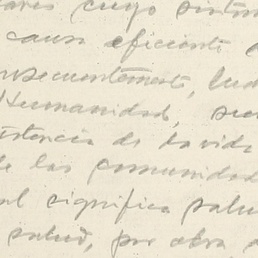 ares cuyo sistem
causa eficiente d
nsecuentemente, lud
Humanidad, se
istencia de la vida
de las comunidad
al significa salu
salud, por obra d